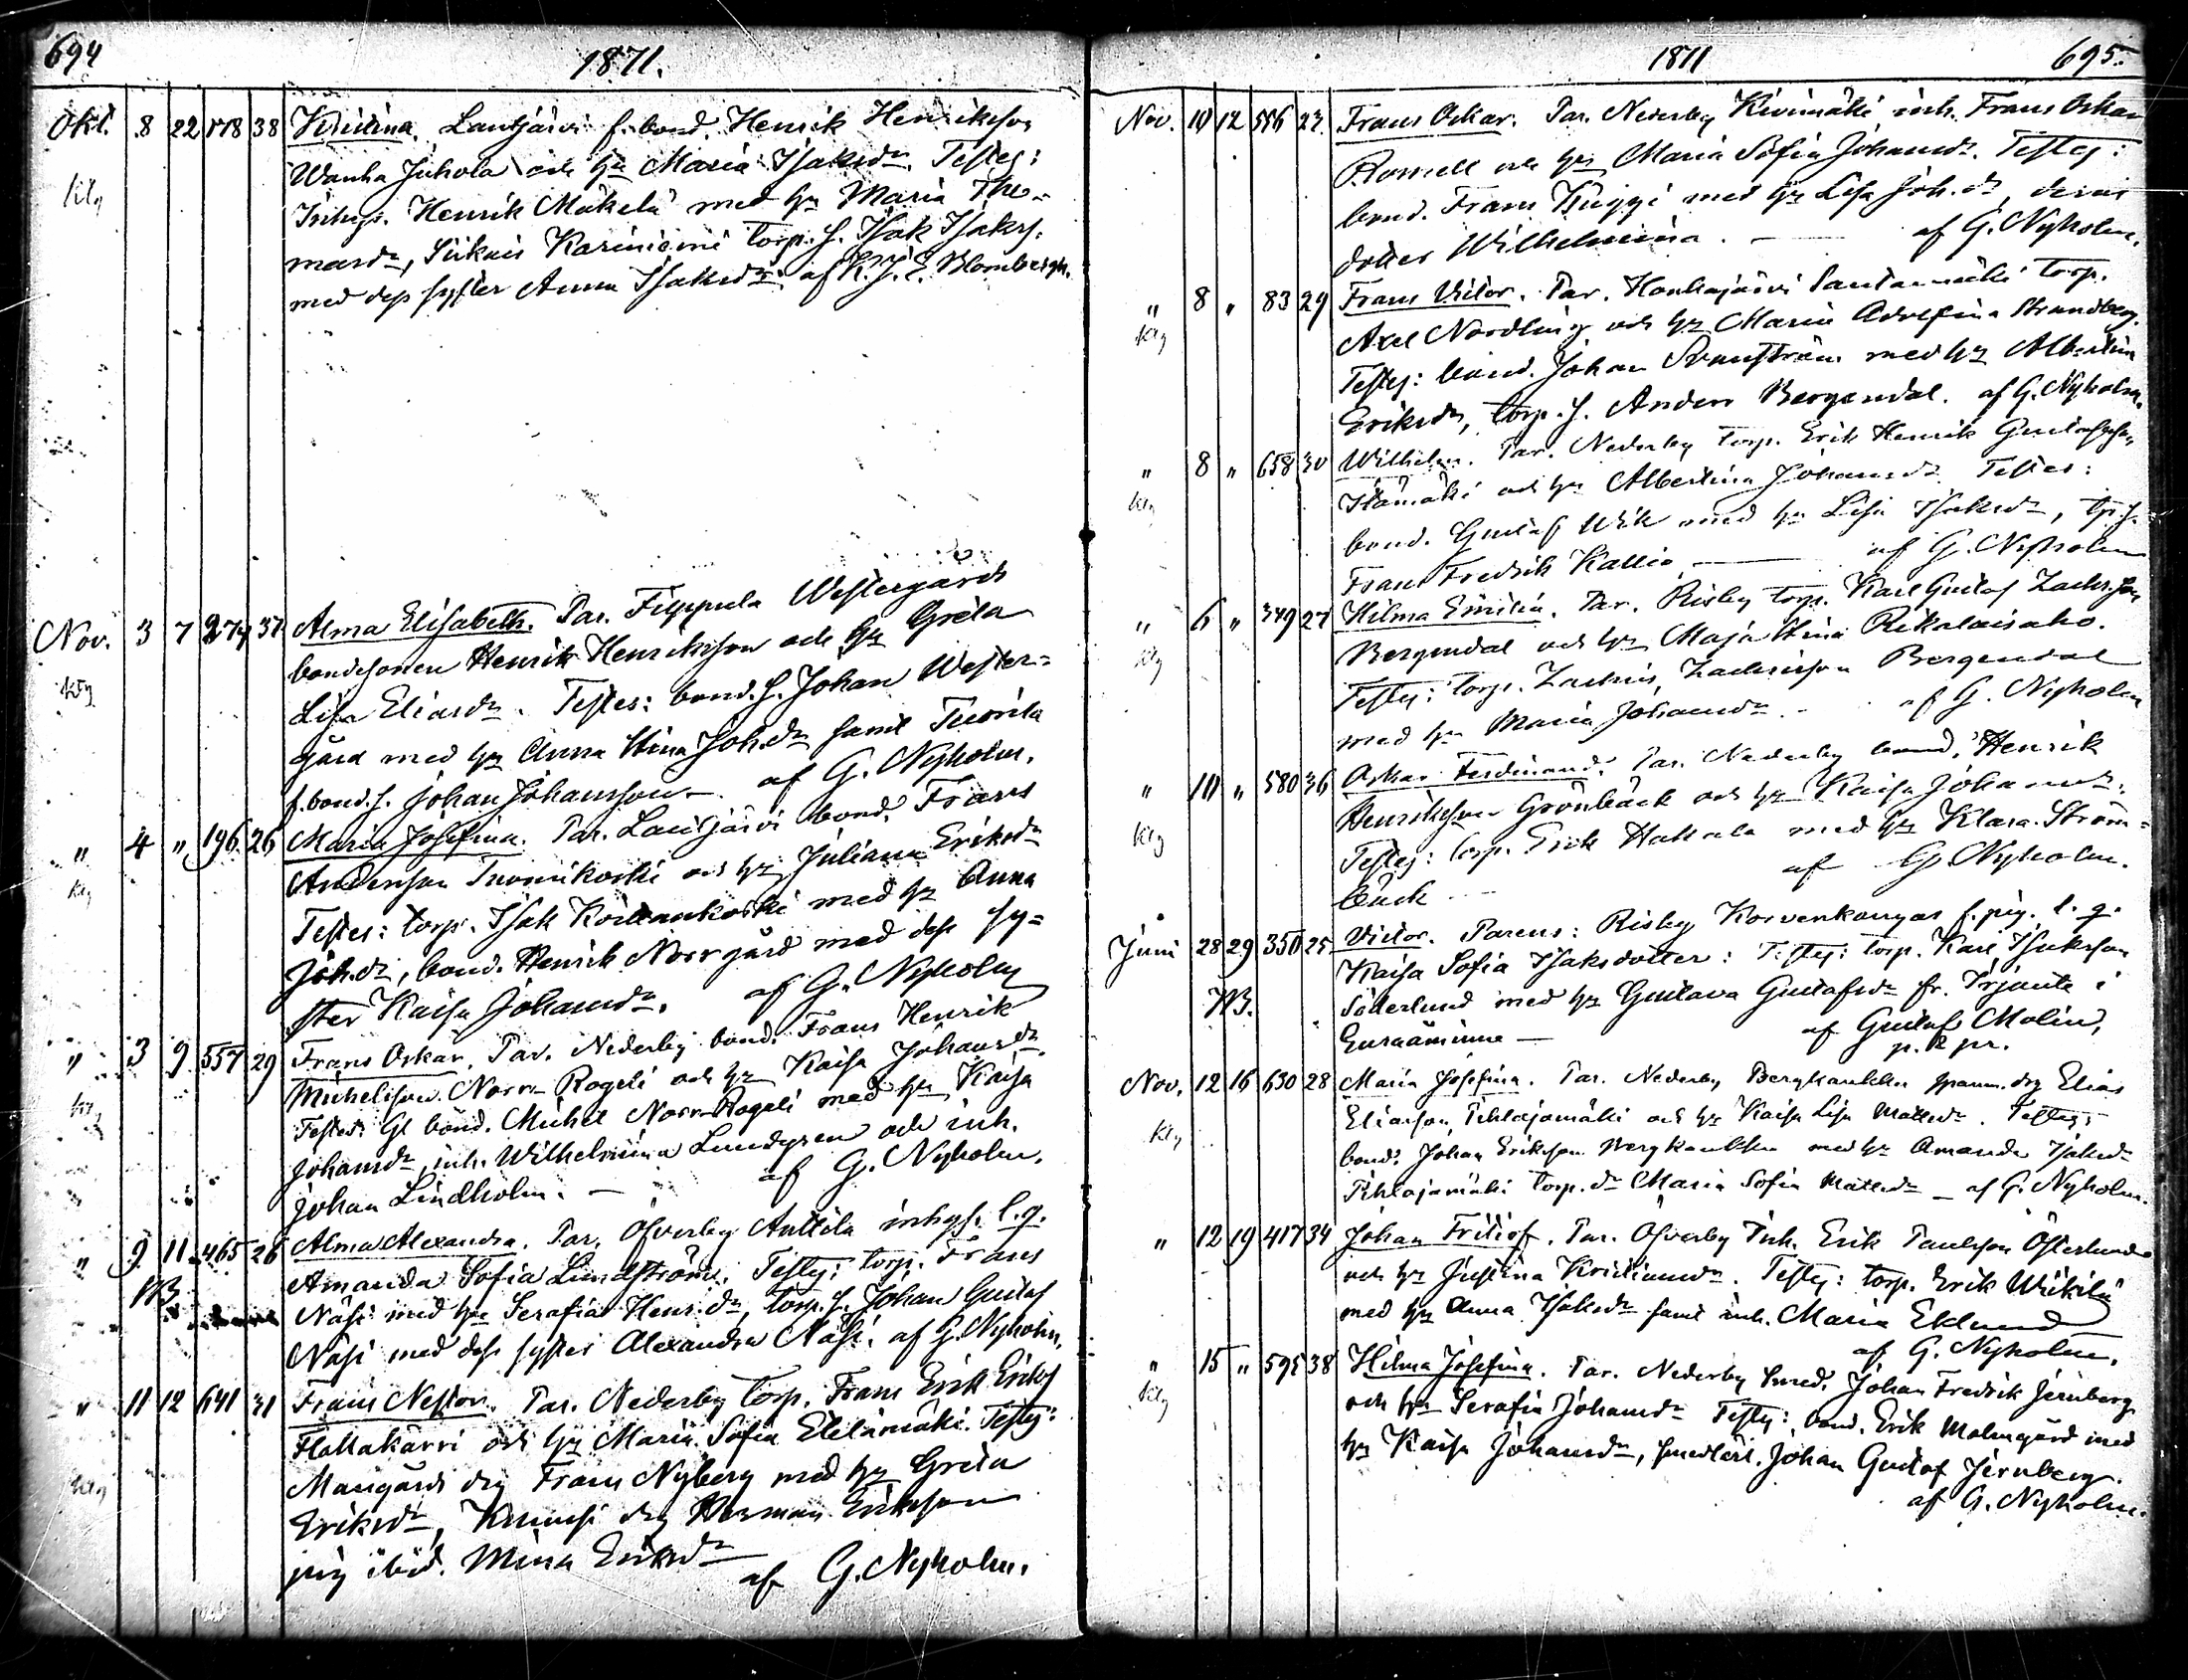 694 1871.
Okt. 8 22 178 38 Kristina. Lautjärvi f. bond. Henrik Henriksson
Wanha Juhola och hu Maria Isaksdr. Testes:
Inhys. Henrik Mäkelä med hu Maria Tho-
masdr, torp. s. Isak Isakss.
med dess syster Anna Isaksdr. af K. J. E. Blombergh.
Nov. 3 7 274 37 Alma Elisabeth. Par. Filppula Westergårds
kty bondesonen Henrik Henriksson och hu Greta
Lisa Eliasdr. Testes: bond. s. Johan Wester-
gård med hu Anna Stina Joh.dr samt Tuorila
f. bond. s. Johan Johansson — af G. Nyholm.
" 4 " 196 26 Maria Josefina. Par. Lautjärvi bond. Frans
kty Andersson Tuomikoski och hu Juliana Eriksdr
Testes: torp. Isak Koivunkoski med hu Anna
Joh.dr, bond. Henrik Norrgård med dess sy-
ster Kaisa Johansdr. af G. Nyholm
" 3 9 557 29 Frans Oskar. Par. Nederby bond. Frans Henrik
kty Michelsson Norr-Rogeli och hu Kaisa Johansdr.
Testes: Gl bond. Michel Norr-Rogeli med hu Kaisa
Johansdr, inh. Wilhelmina Lundgren och inh.
Johan Lindholm. — af G. Nyholm.
" 9 11 465 26 Alma Alexandra. Par. Öfverby Anttila inhys. l. q.
NB Amanda Sofia Lundström. Testes: torp. Frans
Näsi med hu Serafia Henr.dr, torp. s. Johan Gustaf
Näsi med dess syster Alexandra Näsi. af G. Nyholm.
" 11 12 641 31 Frans Nestor. Par. Nederby torp. Frans Erik Eriks
kty Hallakarri och hu Maria Sofia Eteläimäki. Testes:
Mangårds drg Frans Nyberg med hu Greta
Eriksdr, drg Herman Eriksson
pig ibid. Mina Eriksdr af G. Nyholm.
1871 695.
Nov. 10 12 556 23 Frans Oskar. Par. Nederby Kivimäki inh. Frans Oskar
Rosnell och hu Maria Sofia Johansdr. Testes:
bond. Frans Kuggi med hu Lisa Joh.dr, deras
dotter Wilhelmina. — af G. Nyholm.
" 8 " 83 29 Frans Victor. Par. Honkajärvi Santamäki torp.
kty Axel Nordling och hu Maria Adolfina Strandberg.
Testes: bond. Johan Svanström med hu Albertina
Eriksdr, torp. s. Anders Bergendal. af G. Nyholm.
" 8 " 658 30 Wilhelm. Par. Nederby torp. Erik Henrik Gustafsson
kty Itämäki och hu Albertina Johansdr. Testes:
bond. Gustaf Wik med hu Lisa Isaksdr, tp. s.
Frans Fredrik Kallio — af G. Nyholm
" 6 " 349 27 Hilma Emilia. Par. Risby torp. Karl Gustaf Zachrsson
kty Bergendal och hu Maja Stina Rikalaisaho.
Testes: torp. Zachris Zachrisson Bergendal
med hu Maria Johansdr. — af G. Nyholm
" 10 " 580 36 Oskar Ferdinand. Par. Nederby bond. Henrik
kty Henriksson Grönback och hu Kaisa Johansdr.
Testes: torp. Erik Hakala med hu Klara Ström-
bäck — af G. Nyholm.
Juni 28 29 350 25 Victor. Parens: Risby Korvenkangas f. pig. l. q.
NB. Kaisa Sofia Isaksdotter: Testes: torp. Karl Isaksson
Söderlund med hu Gustava Gustafsdr fr. Irjanta i
Euraåminne — af Gustaf Molin,
p. & pr.
Nov. 12 16 630 28 Maria Josefina. Par. Nederby Bergkankku spanm. drg Elias
kty Eliasson Pihlajamäki och hu Kaisa Lisa Mattsdr. Testes:
bond. Johan Eriksson Bergkankku med hu Amanda Isaksdr
Pihlajamäki torp. dr Maria Sofia Mattsdr — af G. Nyholm.
" 12 19 417 34 Johan Fritiof. Par. Öfverby Inh. Erik Paulsson Österlund
och hu Justina Kristiansdr. Testes: torp. Erik Wikilä
med hu Anna Isaksdr samt inh. Maria Eklund
af G. Nyholm.
" 15 " 595 38 Hilma Josefina. Par. Nederby smed. Johan Fredrik Jernberg
kty och hu Serafia Johansdr Testes: bond. Erik Malmgård med
hu Kaisa Johansdr, smedlärl. Johan Gustaf Jernberg.
af G. Nyholm.